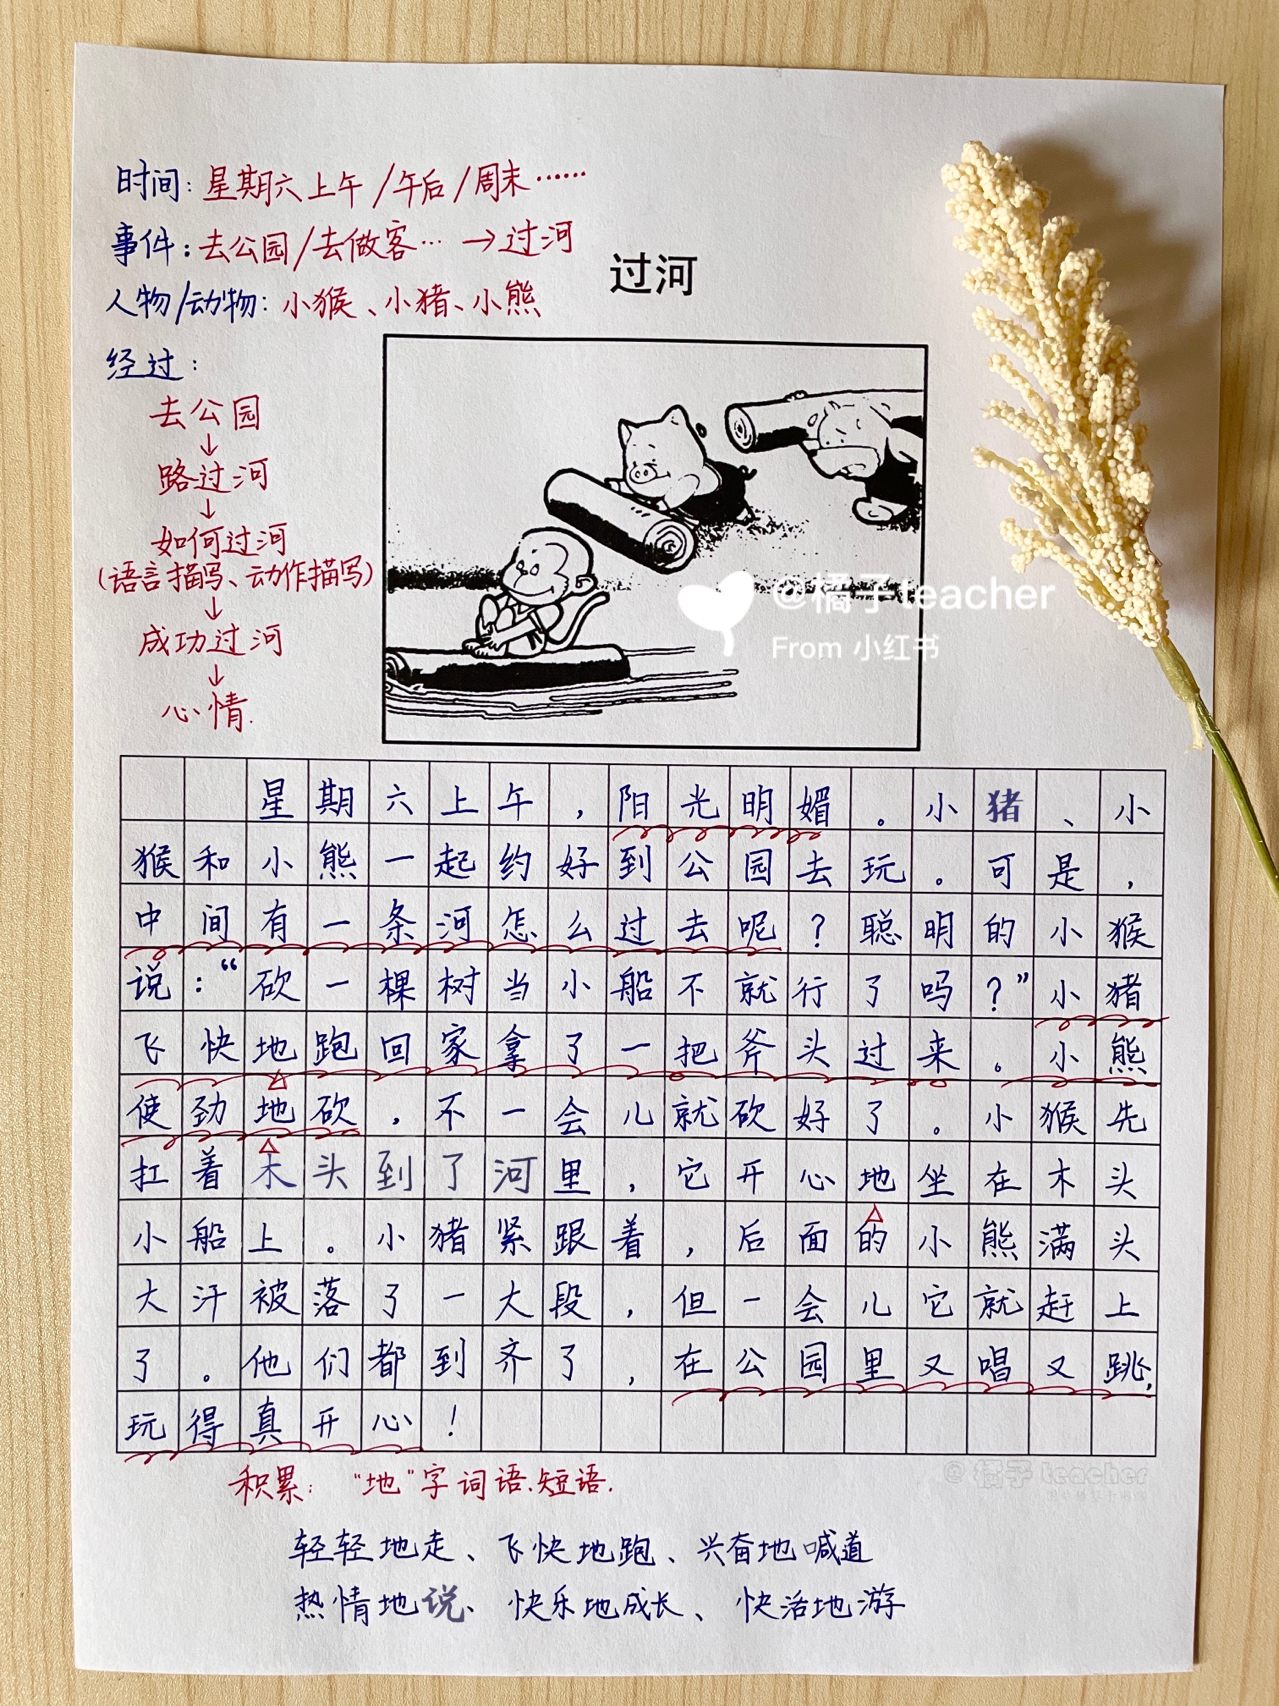 时间：星期六上午/午后/周末……
事件：去公园/去做客…→过河
人物/动物：小猴、小猪、小熊
过河
经过：
去公园
↓
路过河
↓
如何过河
(语言描写、动作描写)
↓
成功过河
↓
心情.
@橘子teacher
From 小红书
星期六上午，阳光明媚。小猪、小
猴和小熊一起约好到公园去玩。可是，
中间有一条河怎么过去呢？聪明的小猴
说：“砍一棵树当小船不就行了吗？”小猪
飞快地跑回家拿了一把斧头过来。小熊
使劲地砍，不一会儿就砍好了。小猴先
扛着木头到了河里，它开心地坐在木头
小船上。小猪紧跟着，后面的小熊满头
大汗被落了一大段，但一会儿它就赶上
了。他们都到齐了，在公园里又唱又跳，
玩得真开心！
@橘子teacher
积累：“地”字词语.短语.
轻轻地走、飞快地跑、兴奋地喊道
热情地说、快乐地成长、快活地游